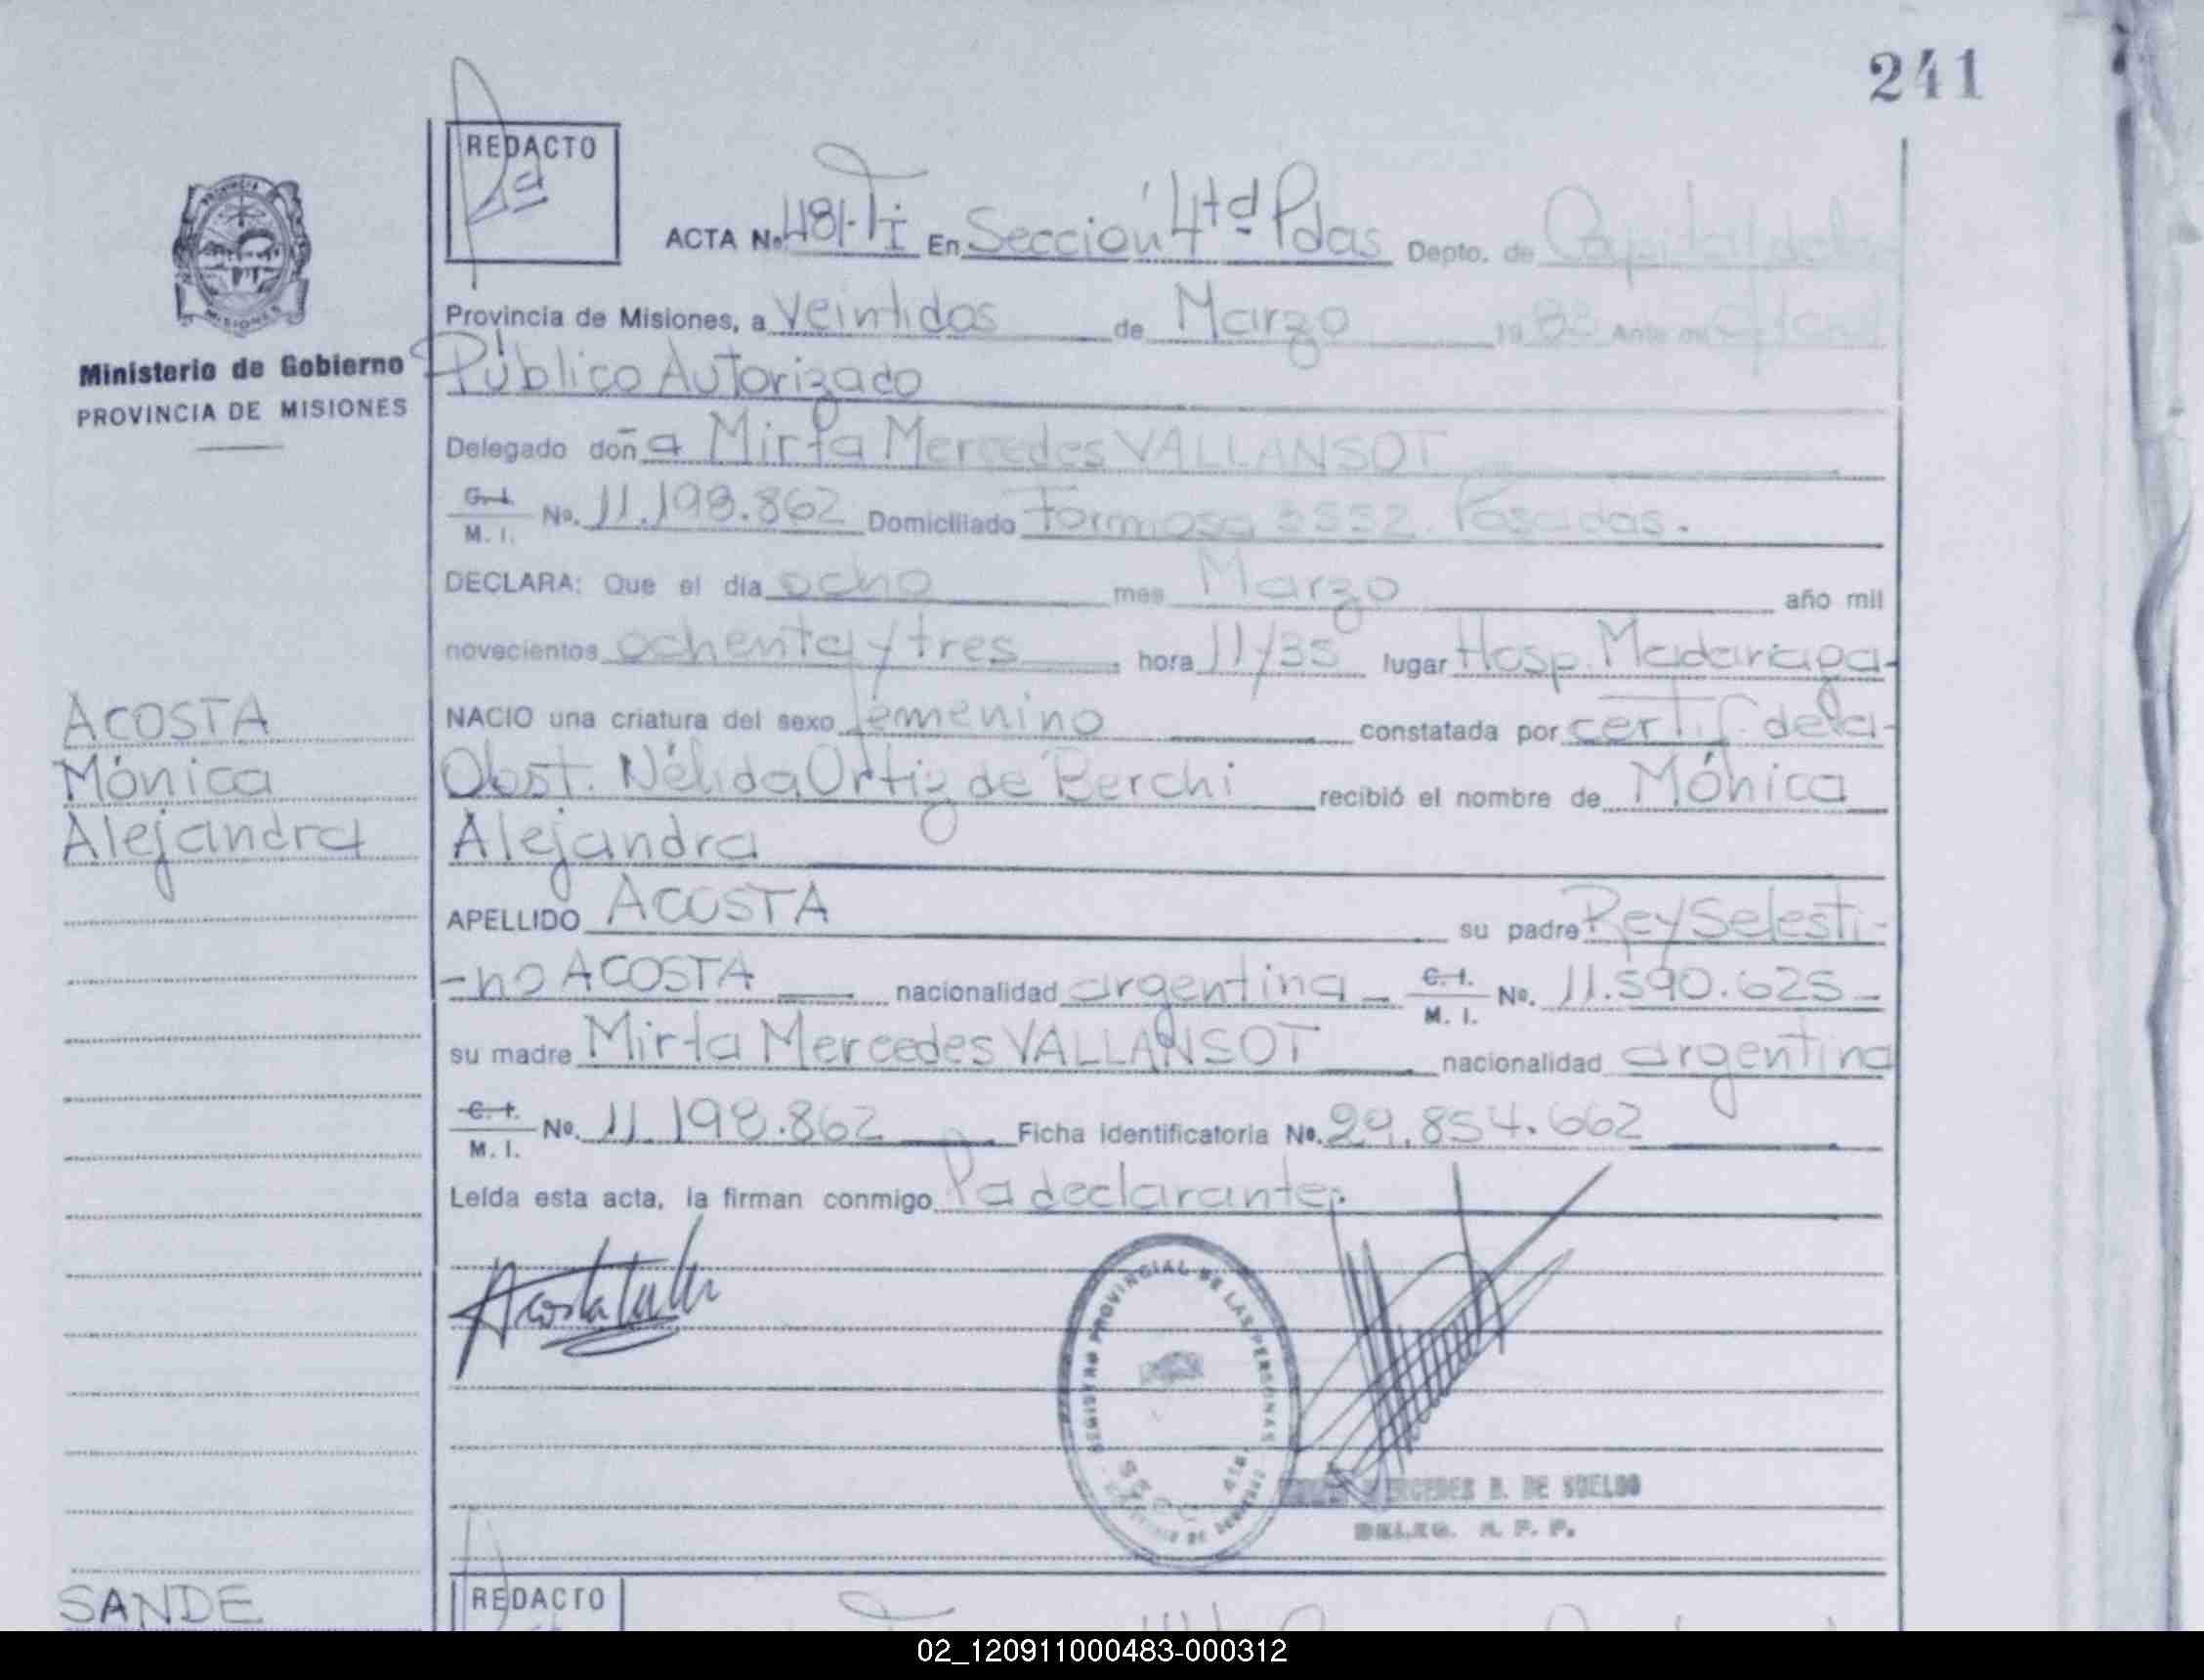 241
REDACTO
ACTA No. 481-TI En Sección 4ta Pdas Depto. de Capital
Ministerio de Gobierno
PROVINCIA DE MISIONES
Provincia de Misiones, a Veintidos de Marzo 1983 Ante mi
Público Autorizado
Delegado doña Mirta Mercedes VALLANSOT
C. I. M. I. No. 11.198.862 Domiciliado Formosa Posadas.
DECLARA: Que el día ocho mes Marzo año mil
novecientos ochenta y tres hora 11/35 lugar Hosp. Madariaga-
NACIO una criatura del sexo femenino constatada por certif. de la-
Obst. Nélida Ortiz de Berchi recibió el nombre de Mónica
Alejandra
ACOSTA
Mónica
Alejandra
APELLIDO ACOSTA su padre Rey Selesti-
-no ACOSTA nacionalidad argentina - C. I. M. I. No. 11.590.625-
su madre Mirta Mercedes VALLANSOT nacionalidad argentina
C. I. M. I. No. 11.198.862 Ficha identificatoria No. 29.854.662
Leída esta acta, la firman conmigo la declarante.
REGISTRO PROVINCIAL DE LAS PERSONAS
SECC. 4ta.
MERCEDES B. DE SUELDO
DELEG. R. P. P.
SANDE
REDACTO
02_120911000483-000312